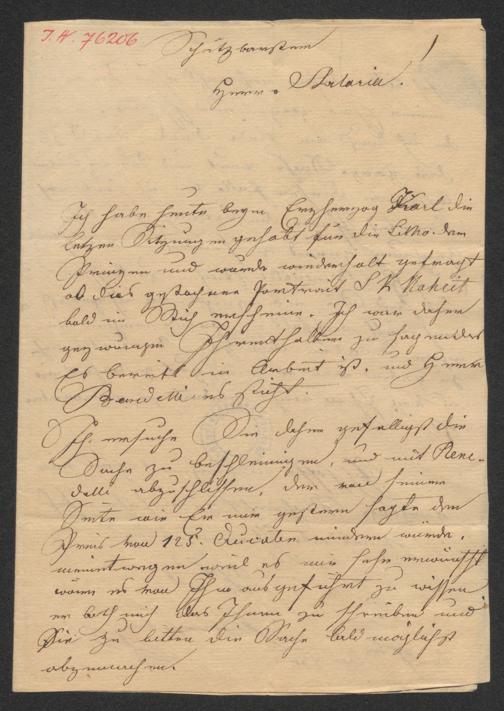 I.N. 76206
Schätzbarster
Herr Artaria!
Ich habe heute beym Erzherzog Karl die
letzen Sitzungen gehabt für die Litho. dem
Prinzen und wurde wiederholt gefragt
ob dies gestochene Portrait S K Hoheit
bald im Stich erscheine. Ich war daher
gezwungen zu sagen das
Es bereits in Arbeit ist, und Herr
Benedetti es sticht.
Ich ersuche Sie daher gefälligst die
Sache zu beschleinigen, und mit Bene-
detti abzuschlissen, der von seiner
Seite wie Er mir gestern sagte den
Preis von 125 # mindern würde,
meinetwegen weil es mir sehr erwünscht
wäre es von Ihm ausgeführt zu wissen
er both mich das Ihnen zu schreiben und
Sie zu bitten die Sache bald möglichst
abzumachen.